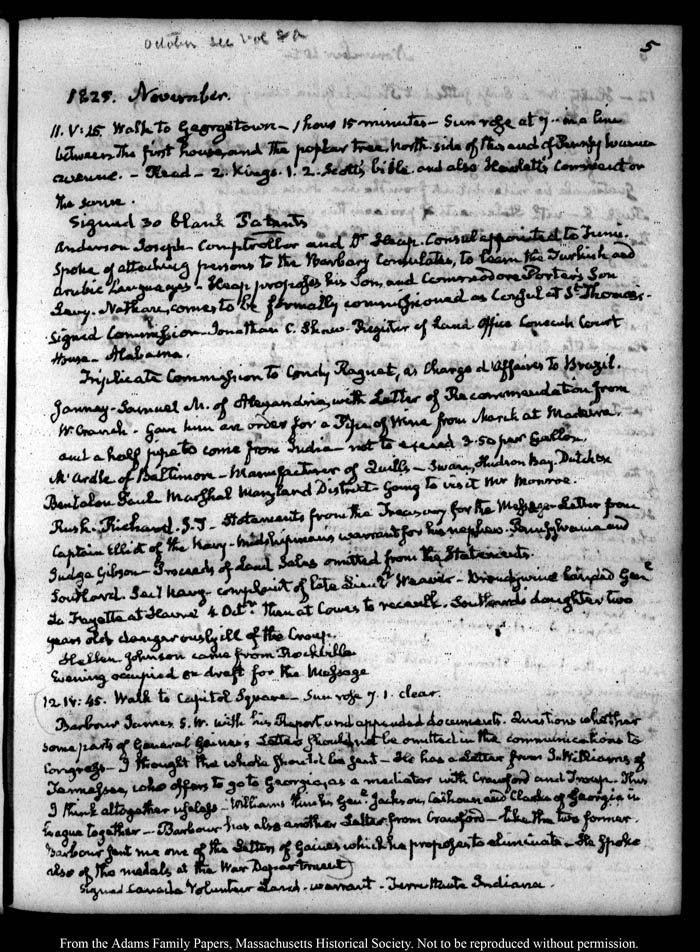 October see Vol
5
1825. November.
11. V:15. Walk to Georgetown – 1 hour 15 minutes – Sun rose at 7 in a line
between the first house and the poplar tree north side of this end of Pennsylvania
avenue. – Read – 2. Kings. 1. 2. Scott's bible and also Hewlett's Comment on
the same.
Signed 30 blank Patents
Anderson Joseph – Comptroller and Dr Heap. Consul appointed to Tunis.
Spoke of attaching persons to the Barbary Consulates, to learn the Turkish and
Arabic Languages – Heap proposes his Son, and Commodore Porter's Son
Levy. Nathan, comes to be formally commissioned as Consul at St. Thomas.
Signed Commission – Jonathan C. Shaw – Register of Land Office Conecuh Court
House – Alabama.
Triplicate Commission to Condy Raguet, as Chargé d'Affaires to Brazil.
Janney – Samuel M. of Alexandria, with Letter of Recommendation from
W. Cranch. Gave him an order for a Pipe of Wine from March at Madeira.
and a half pipe to come from India – not to exceed 3.50 per Gallon.
McArdle of Baltimore – Manufacturer of Quills – Swan, Hudson Bay. Dutch
Bentalou Paul Marshal Maryland District – Going to visit Mr Monroe.
Rush. Richard. S.T – Statements from the Treasury for the Message – Letter from
Captain Elliot of the Navy – Midshipman's warrant for his nephew. Pennsylvania and
Judge Gibson – Proceeds of Land Sales omitted from the Statements.
Southard. Sec.y Navy – complaint of late Lieut.t Weaver – Brandywine landed Gen.l
La Fayette at Havre 4 Oct.r Then at Cowes to recaulk. Southard's daughter two
years old dangerously ill of the Croup.
Hellen Johnson came from Rockville
Evening occupied on draft for the Message
12. IV: 45. Walk to Capitol Square – Sun rose 7. 1. clear.
Barbour James S. W. with his Report and appended documents. Questions whether
some parts of General Gaines's Letters should not be omitted in the communications to
Congress – I thought the whole should be sent – He has a Letter from J. Williams of
Tennessee, who offers to go to Georgia, as a mediator with Crawford and Troup. This
I think altogether useless – Williams thinks Gen.l Jackson, Calhoun and Clarke of Georgia in
league together – Barbour has also another Letter from Crawford – like the two former.
Barbour sent me one of the Letters of Gaines which he proposes to eliminate – He spoke
also of the medals at the War Department
Signed Canada Volunteer Land – warrant – Terre Haute Indiana.
From the Adams Family Papers, Massachusetts Historical Society. Not to be reproduced without permission.